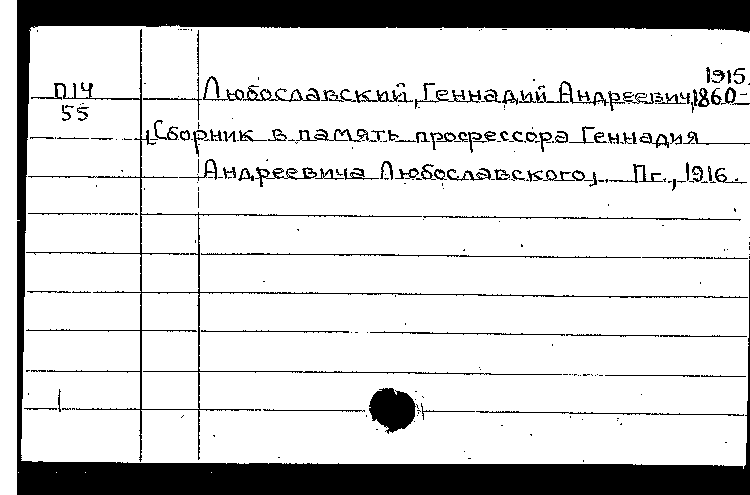 1915.
П14 Любославский, Геннадий Андреевич, 1860-
55
Сборник в память профессора Геннадия
Андреевича Любославского, Пг., 1916.